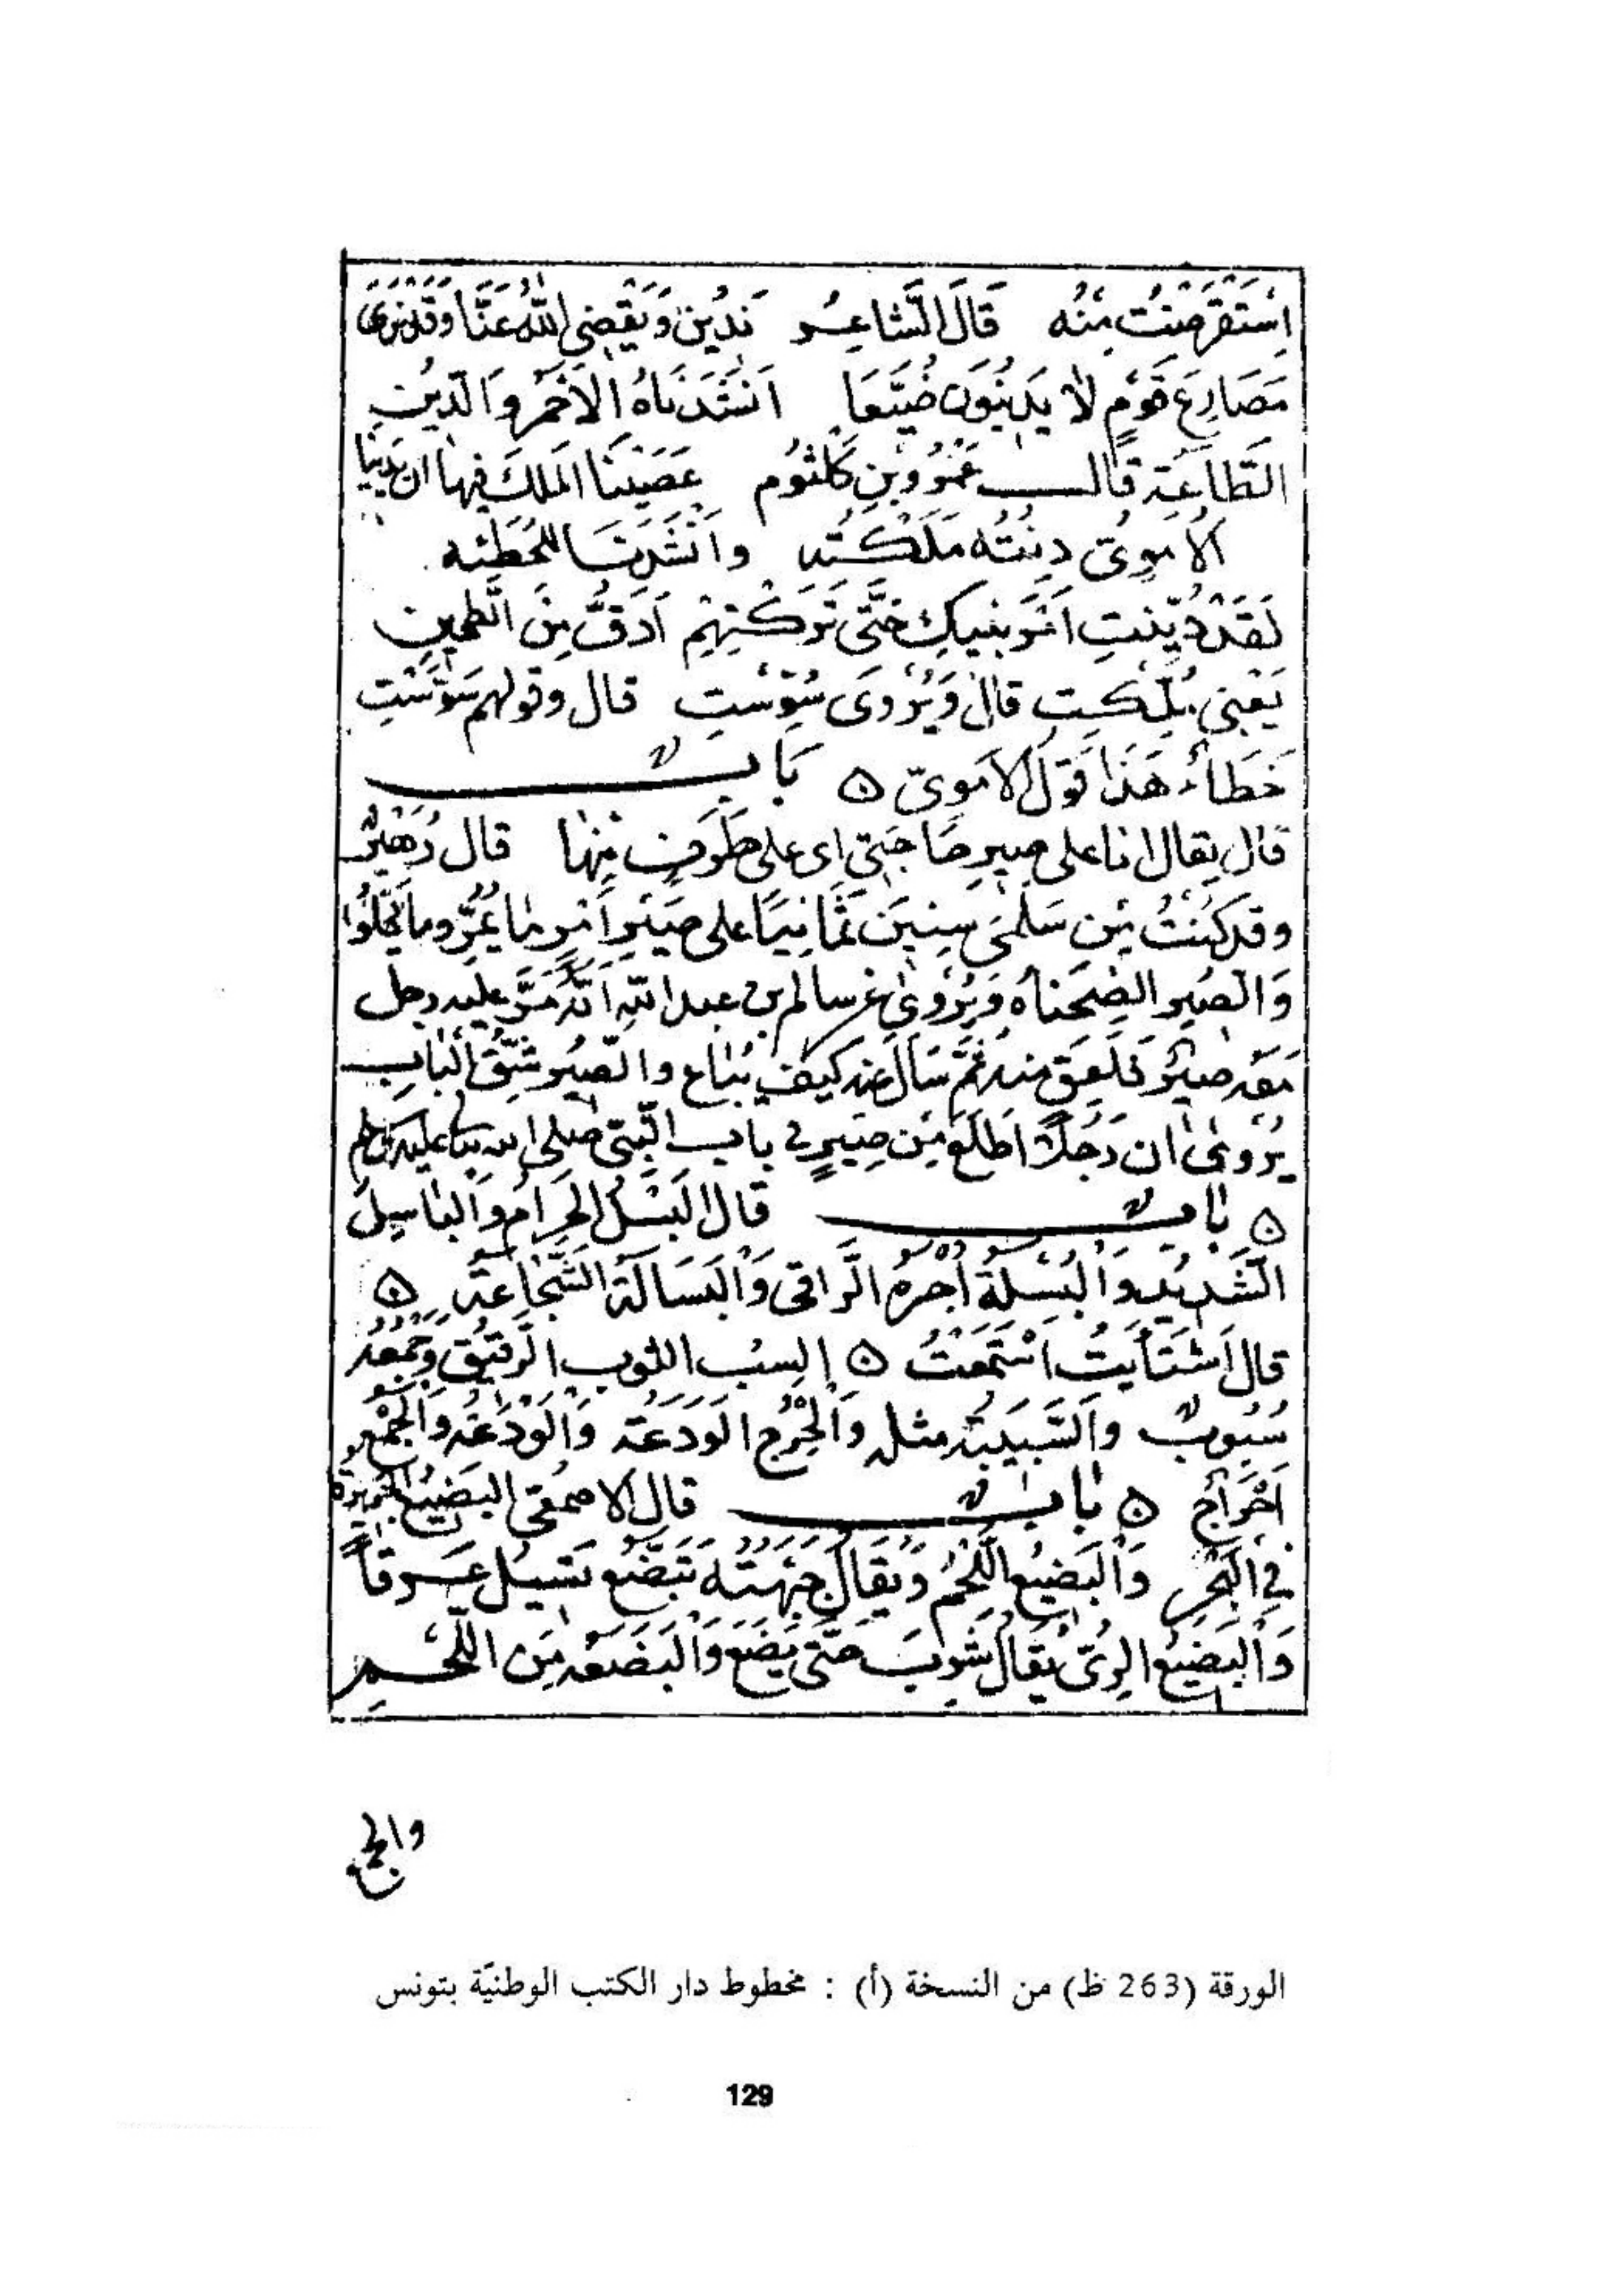 اِسْتَقْرَضْتُ مِنْهُ قَالَ الشَّاعِرُ نَدِينُ وَيَقْضِي اللهُ عَنَّا وَقَدْ نَرَى
مَصَارِعَ قَوْمٍ لَا يَدِينُونَ ضُيَّعَا أَنْشَدَنَاهُ الأَحْمَرُ وَالدِّينُ
الطَّاعَة قَالَ عَمْرُو بْنِ كُلْثُوم عَصَيْنَا المَلِكَ فِيهَا ان نَدِينَا
الأُمَوِيّ دِنْتُه مَلَكْتُه وَأَنْشَدَنَا لِلْحُطَيْئَه
لَقَدْ دُيِّنْتِ أَمْرَ بَنِيكِ حَتَّى تَرَكْتِهِمْ أَدَقَّ مِنَ الطَّحِينِ
يَعْنِي مُلِّكْتِ قال وَيُرْوَى سُوِّسْتِ قال وقولهم سَوَّسْتِ
خَطَاءٌ هَذَا قَوْلُ الأُمَوِيّ ٥ بَابٌ
قال يقال انا على صِيرِ حَاجَتِي اي على طَرَفٍ مِنْهَا قال زُهَيْرٌ
وقد كُنْتُ مِنْ سَلْمَى سِنِينَ ثَمَانِيًا على صِيرِ أَمْرٍ مَا يَمُرُّ وما يَحْلُوا
وَالصِّيرُ الصِّحْنَاهُ وَيُرْوَى عن سالم بن عبد الله أَنَّهُ مَرَّ عليه رجل
مَعَه صِيرٌ فَلَعِقَ مِنْهُ ثُمَّ سَأَلَ عنه كَيْفَ يُبَاع والصِّيرُ شَقُّ البَابِ
يُرْوَى ان رَجُلًا اطَّلَعَ مِن صِيرِ باب النَّبِيّ صلى الله عليه وسلم
٥ بَابٌ قال البَسْلُ الحَرَامُ وَالبَاسِلُ
الشَّدِيدُ وَالبُسْلَةُ أُجْرَةُ الرَّاقِي وَالبَسَالَةُ الشَّجَاعَةُ ٥
قال اشْتَأَيْتُ اسْتَمَعْتُ ٥ السِبُّ الثوب الرَّقِيقُ وَجَمْعُهُ
سُبُوبٌ وَالسَّبِيبَةُ مثله وَالحِرْجُ الوَدَعَة وَالوَدَعَةُ وَالجَمْعُ
أَحْرَاجٌ ٥ بَابٌ قال الأصمَعِي البَضِيعُ الجَزِيرَةُ
فِي البَحْرِ وَالبَضِيعُ اللَّحْمُ وَيُقَالُ جَبْهَتُهُ تَبَضَّعُ تَسِيلُ عَرَقًا
وَالبَضِيعُ الرِّيُّ يُقَالُ شَرِبَ حَتَّى بَضَعَ وَالبَضْعَةُ مِنَ اللَّحْمِ
والجمع
الورقة (263 ظ) من النسخة (أ) : مخطوط دار الكتب الوطنيّة بتونس
129